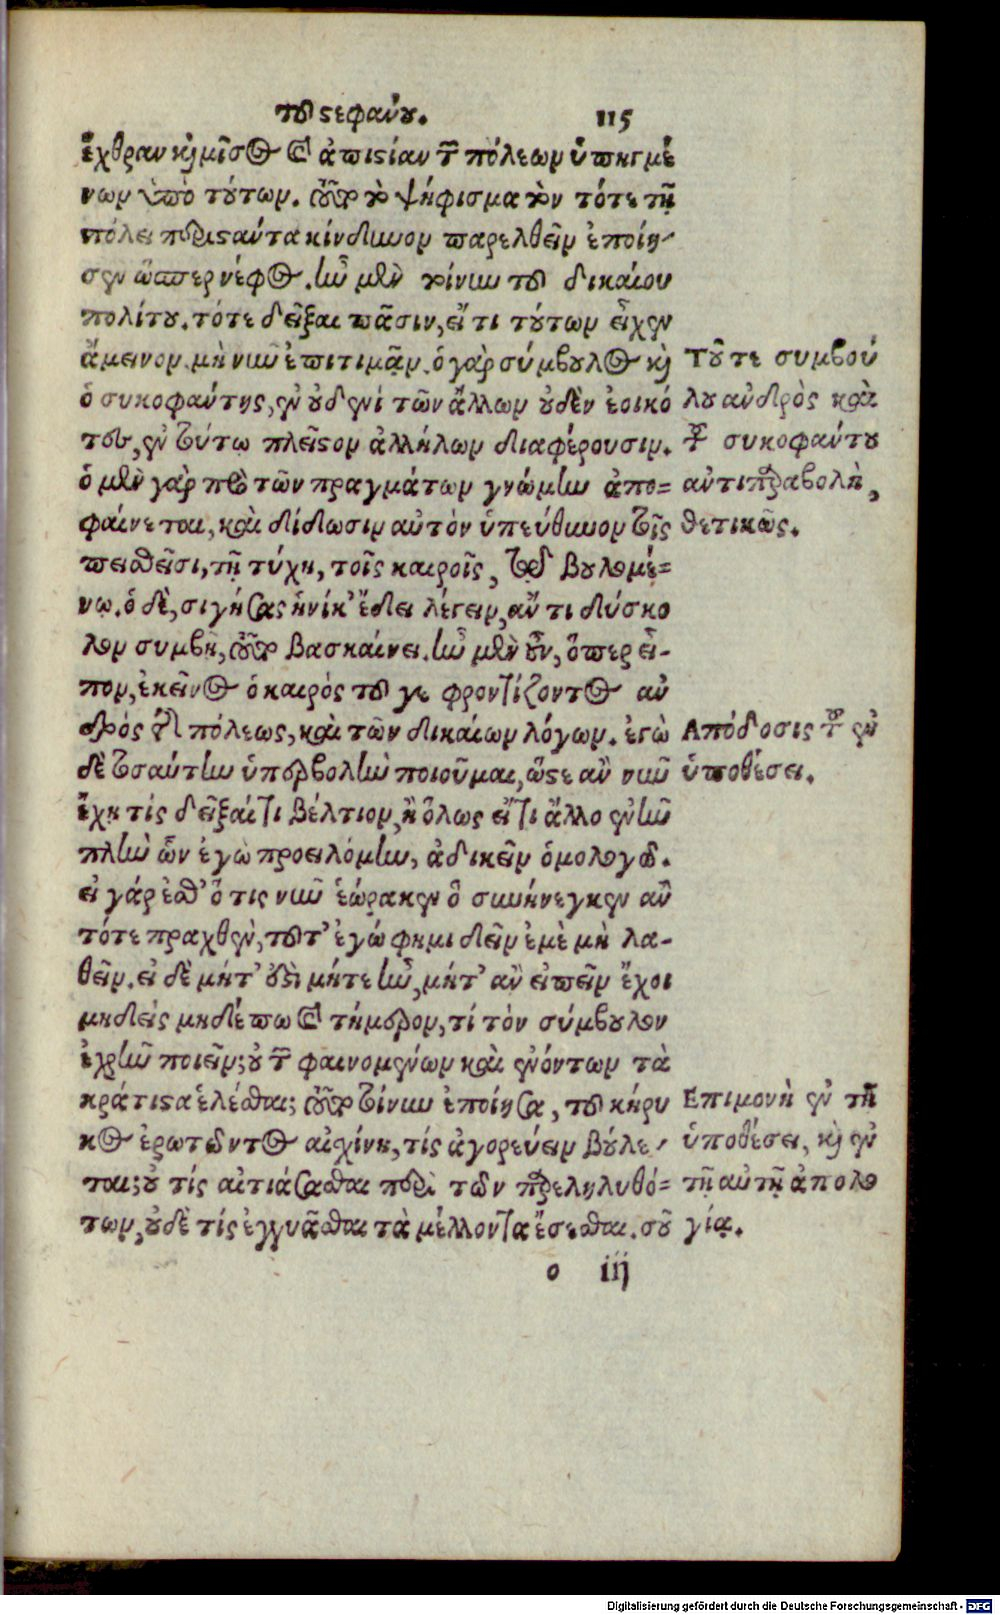 τοῦ στεφάνου. 115
ἔχθραν καὶ μῖσος καὶ ἀπιστίαν τῶν πόλεων ὑπηγμέ
νων ὑπὸ τούτων. τοῦτο τὸ ψήφισμα τὸν τότε τῇ
πόλει περιστάντα κίνδυνον παρελθεῖν ἐποίη-
σεν ὥσπερ νέφος. ἦν μὲν τοίνυν τοῦ δικαίου
πολίτου. τότε δεῖξαι πᾶσιν, εἴ τι τούτων εἶχεν
ἄμεινον. μὴ νῦν ἐπιτιμᾶν. ὁ γὰρ σύμβουλος καὶ
ὁ συκοφάντης, ἐν οὐδενὶ τῶν ἄλλων οὐδὲν ἐοικό
τες, ἐν τούτῳ πλεῖστον ἀλλήλων διαφέρουσιν.
ὁ μὲν γὰρ πρὸ τῶν πραγμάτων γνώμην ἀπο=
φαίνεται, καὶ δίδωσιν αὑτὸν ὑπεύθυνον τοῖς
πεισθεῖσι, τῇ τύχῃ, τοῖς καιροῖς, τῷ βουλομέ=
νῳ. ὁ δὲ, σιγήσας ἡνίκ' ἔδει λέγειν, ἄν τι δύσκο
λον συμβῇ, τοῦτο βασκαίνει. ἦν μὲν οὖν, ὅπερ εἶ-
πον, ἐκεῖνος ὁ καιρὸς τοῦ γε φροντίζοντος ἀν
δρὸς τῆς πόλεως, καὶ τῶν δικαίων λόγων. ἐγὼ
δὲ τοσαύτην ὑπερβολὴν ποιοῦμαι, ὥστε ἂν νῦν
ἔχῃ τίς δεῖξαί τι βέλτιον, ἢ ὅλως εἴ τι ἄλλο ἐνῆν
πλὴν ὧν ἐγὼ προειλόμην, ἀδικεῖν ὁμολογῶ.
εἰ γάρ ἐσθ' ὅ τις νῦν ἑώρακεν ὃ συνήνεγκεν ἂν
τότε πραχθὲν, τοῦτ' ἐγώ φημι δεῖν ἐμὲ μὴ λα-
θεῖν. εἰ δὲ μήτ' ἐστὶ μήτε ἦν, μήτ' ἂν εἰπεῖν ἔχοι
μηδεὶς μηδέπω καὶ τήμερον, τί τὸν σύμβουλον
ἐχρῆν ποιεῖν; οὐ τῶν φαινομένων καὶ ἐνόντων τὰ
κράτιστα ἑλέσθαι; τοῦτο τοίνυν ἐποίησα, τοῦ κήρυ
κος ἐρωτῶντος αἰσχίνη, τίς ἀγορεύειν βούλε-
ται; οὐ τίς αἰτιάσασθαι περὶ τῶν παρεληλυθό=
των, οὐδὲ τίς ἐγγυᾶσθαι τὰ μέλλοντα ἔσεσθαι. σοῦ
Τοῦ τε συμβού
λου ἀνδρὸς καὶ
τοῦ συκοφάντου
ἀντιπαραβολὴ,
θετικῶς.
Ἀπόδοσις τοῦ ἐν
ὑποθέσει.
Ἐπιμονὴ ἐν τῇ
ὑποθέσει, καὶ ἐν
τῇ αὐτῇ ἀπολο
γίᾳ.
o iij
Digitalisierung gefördert durch die Deutsche Forschungsgemeinschaft - DFG